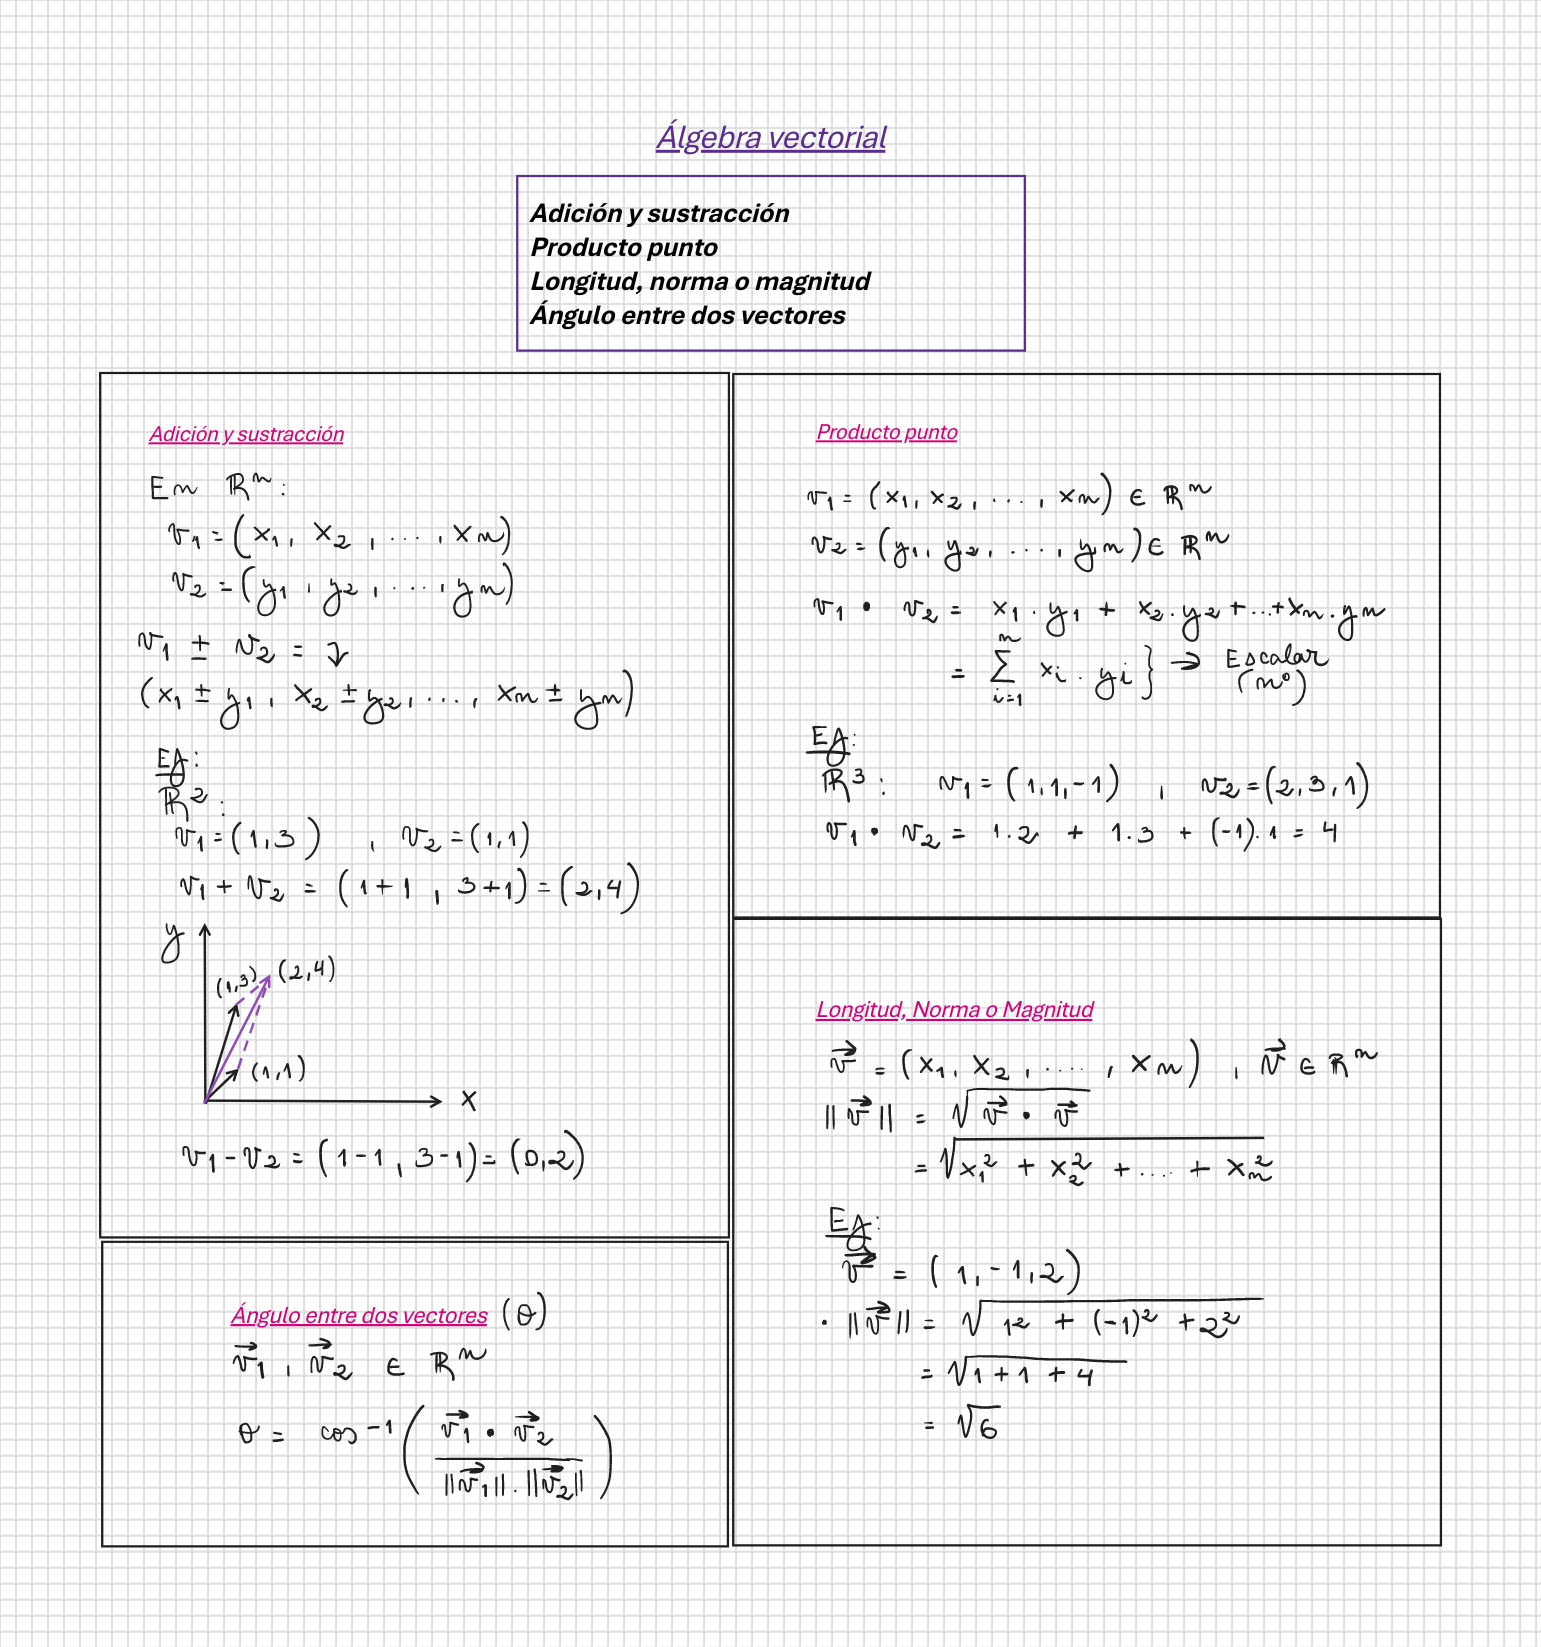 Álgebra vectorial
Adición y sustracción
Producto punto
Longitud, norma o magnitud
Ángulo entre dos vectores
Adición y sustracción
En ℝⁿ:
v₁ = (x₁, x₂, ...., xₙ)
v₂ = (y₁, y₂, ...., yₙ)
v₁ ± v₂ = ↴
(x₁ ± y₁, x₂ ± y₂, ..., xₙ ± yₙ)
EJ:
ℝ²:
v₁ = (1,3) , v₂ = (1,1)
v₁ + v₂ = (1+1 , 3+1) = (2,4)
y
(1,3) (2,4)
(1,1)
x
v₁ - v₂ = (1-1, 3-1) = (0,2)
Producto punto
v₁ = (x₁, x₂, ..., xₙ) ∈ ℝⁿ
v₂ = (y₁, y₂, ..., yₙ) ∈ ℝⁿ
v₁ • v₂ = x₁ . y₁ + x₂ . y₂ + ... + xₙ . yₙ
= ∑ⁿᵢ₌₁ xᵢ . yᵢ } → Escalar
(nº)
EJ:
ℝ³: v₁ = (1,1,-1) , v₂ = (2,3,1)
v₁ • v₂ = 1.2 + 1.3 + (-1).1 = 4
Longitud, Norma o Magnitud
v⃗ = (x₁, x₂, ...., xₙ) , v⃗ ∈ ℝⁿ
||v⃗|| = √(v⃗ • v⃗)
= √(x₁² + x₂² + .... + xₙ²)
EJ:
v⃗ = (1,-1,2)
• ||v⃗|| = √(1² + (-1)² + 2²)
= √(1+1+4)
= √6
Ángulo entre dos vectores (θ)
v⃗₁, v⃗₂ ∈ ℝⁿ
θ = cos⁻¹( v⃗₁ • v⃗₂ / ||v⃗₁|| . ||v⃗₂|| )